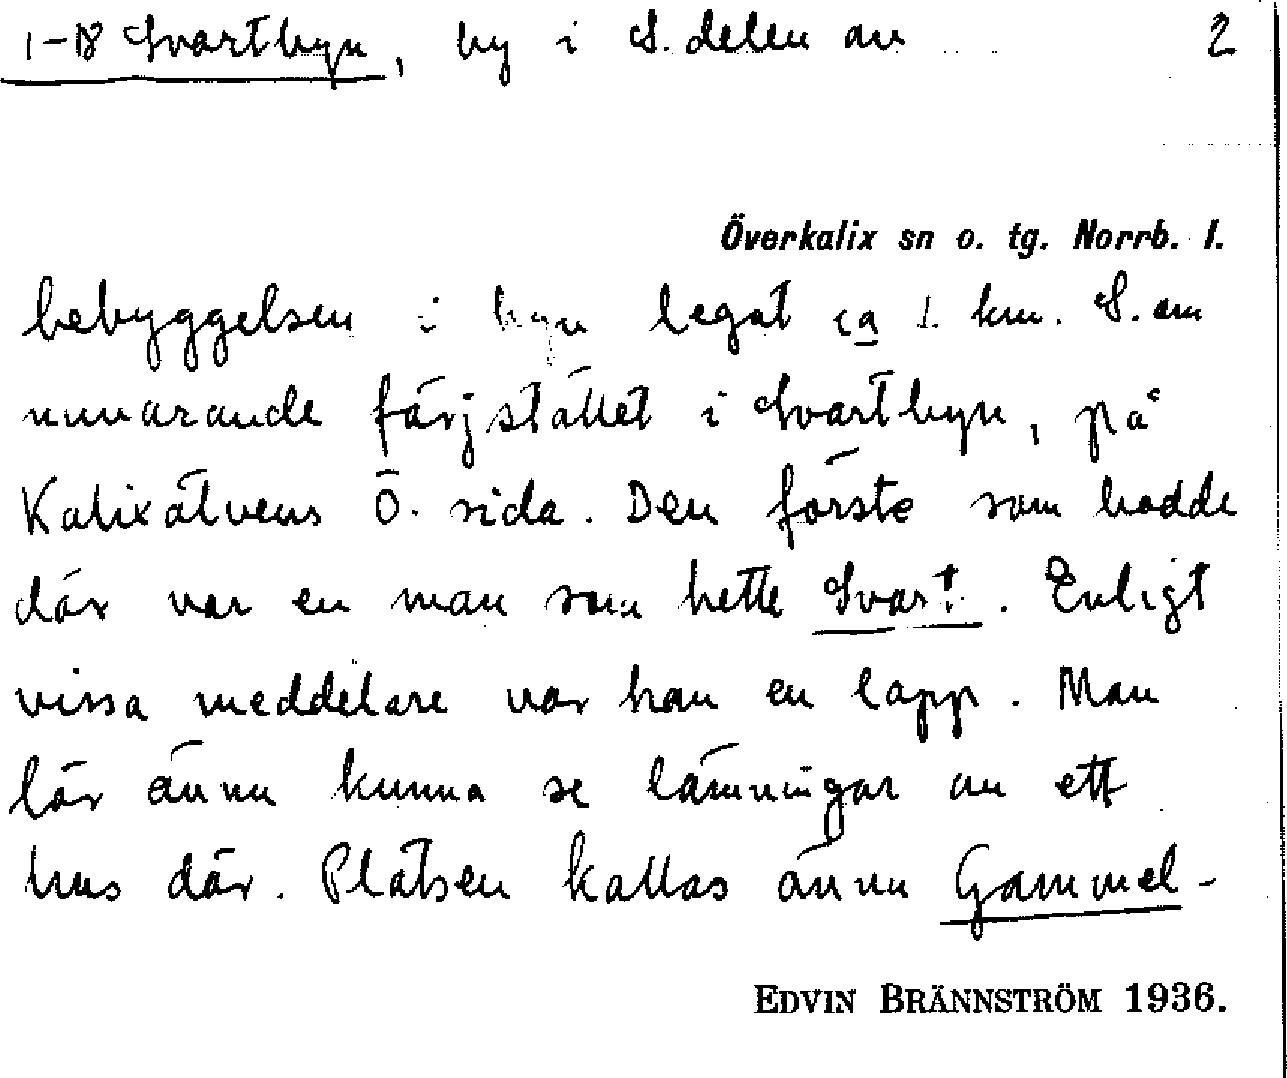 1-18 Svartbyn, by i S. delen av 2
Överkalix sn o. tg. Norrb. l.
bebyggelsen i byn legat ca 1 km. S. om
nuvarande färjstället i Svartbyn, på
Kalixälvens Ö. sida. Den förste som bodde
där var en man som hette Svart. Enligt
vissa meddelare var han en lapp. Man
lär ännu kunna se lämningar av ett
hus där. Platsen kallas ännu Gammel-
EDVIN BRÄNNSTRÖM 1936.